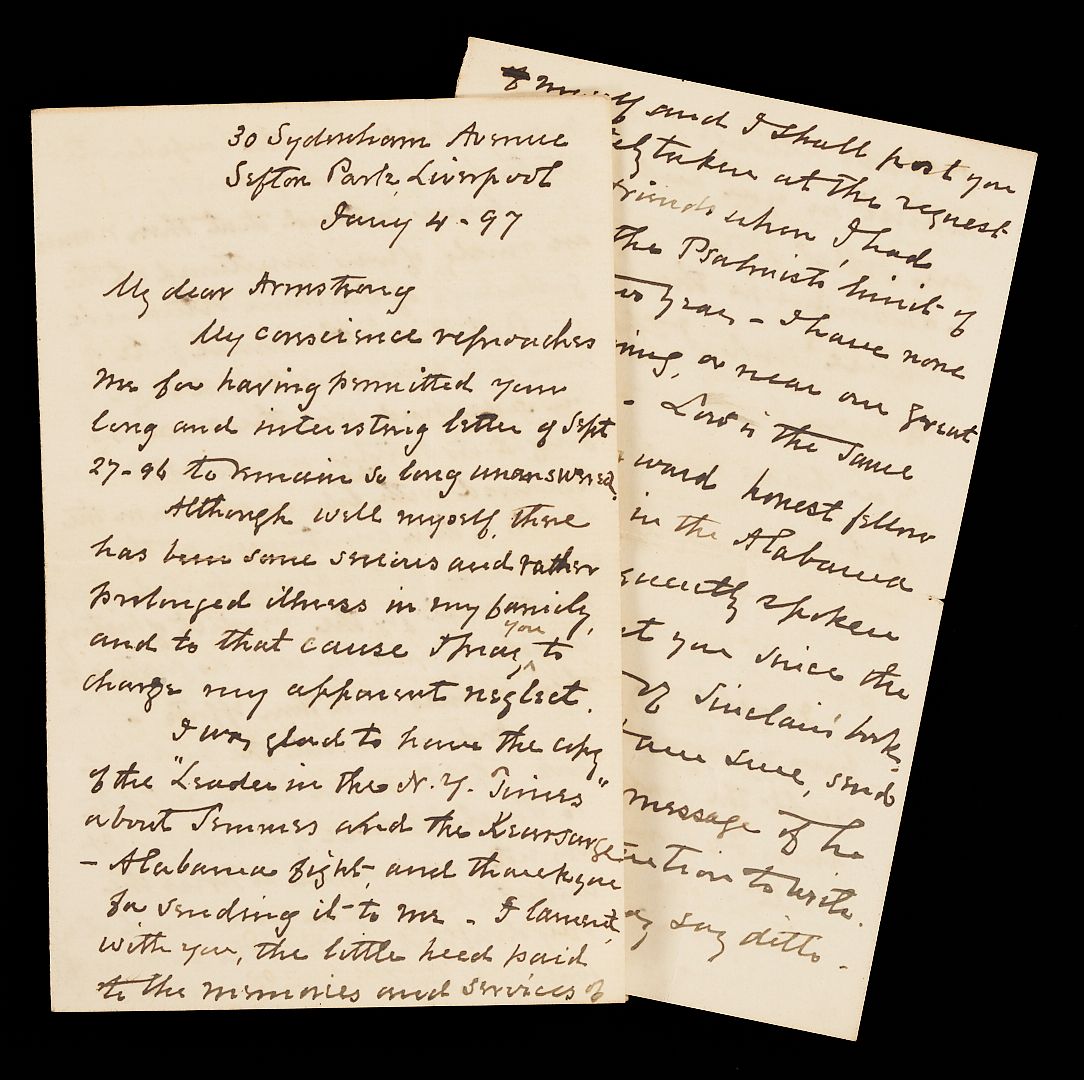 30 Sydenham Avenue
Sefton Park, Liverpool
Jany 4 - 97
My dear Armstrong
My conscience reproaches
me for having permitted your
long and interesting letter of Sept
27-96 to remain so long unanswered.
Although well myself, there
has been some serious and rather
prolonged illness in my family,
and to that cause I pray you to
charge my apparent neglect.
I was glad to have the copy
of the "Leader in the N.Y. Times"
about Semmes and the Kearsarge
- Alabama fight, and thank you
for sending it to me - I lament,
with you, the little heed paid
to the memories and services of
of myself and I shall post you
taken at the request
friends when I had
the Psalmist's limit of
years - I have none
or near our great
- Low is the same
ward honest fellow
in the Alabama
spoken
you since the
of Sinclair's book
sure, send
message of he
to write.
say ditto.